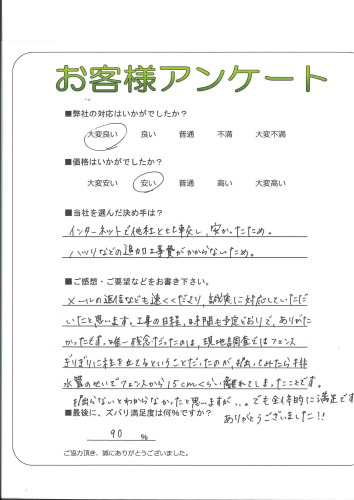 お客様アンケート
■弊社の対応はいかがでしたか?
大変良い 良い 普通 不満 大変不満
■価格はいかがでしたか?
大変安い 安い 普通 高い 大変高い
■当社を選んだ決め手は?
インターネットで他社と比較し、安かったため。
ハツリなどの追加工事費がかからないため。
■ご感想・ご要望などをお書き下さい。
メールの返信なども速くくださり、誠実に対応していただ
いたと思います。工事の日程、日時間も予定どおりで、ありがた
かったです。唯一残念だったのは、現地調査ではフェンス
ぎりぎりに柱を立てるということだったのが、掘ってみたら排
水管のせいでフェンスから15cmくらい離れてしまったことです。
掘らないとわからなかったと思いますが、、。でも全体的に満足です
ありがとうございました!!
■最後に、ズバリ満足度は何%ですか?
90 %
ご協力頂き、誠にありがとうございました。